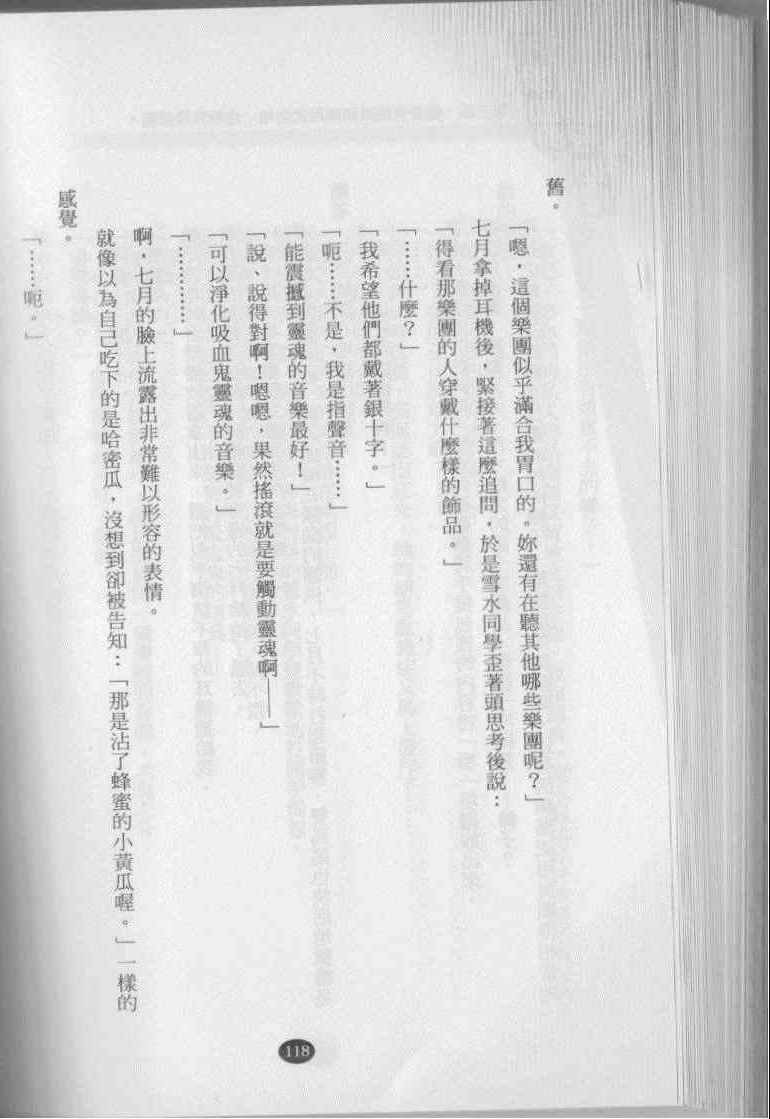 舊。
「嗯，這個樂團似乎滿合我胃口的。妳還有在聽其他哪些樂團呢？」
七月拿掉耳機後，緊接著這麼追問，於是雪水同學歪著頭思考後說：
「得看那樂團的人穿戴什麼樣的飾品。」
「……什麼？」
「我希望他們都戴著銀十字。」
「呃……不是，我是指聲音……」
「能震撼到靈魂的音樂最好！」
「說、說得對啊！嗯嗯，果然搖滾就是要觸動靈魂啊——」
「可以淨化吸血鬼靈魂的音樂。」
「…………」
啊，七月的臉上流露出非常難以形容的表情。
就像以為自己吃下的是哈密瓜，沒想到卻被告知：「那是沾了蜂蜜的小黃瓜喔。」一樣的
感覺。
「……呃。」
118